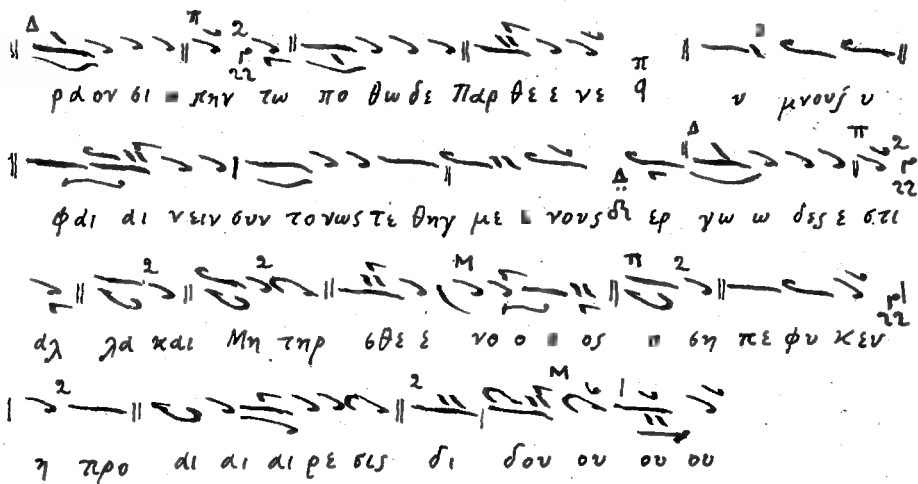 ρα ον σι πην τω πο θω δε Παρ θε ε νε υ μνους υ
φαι αι νειν συν το νως τε θηγ με νους ερ γω ω δες ε στι
αλ λα και Μη τηρ σθε ε νο ο ος ση πε φυ κεν
η προ αι αι αι ρε σις δι δου ου ου ου